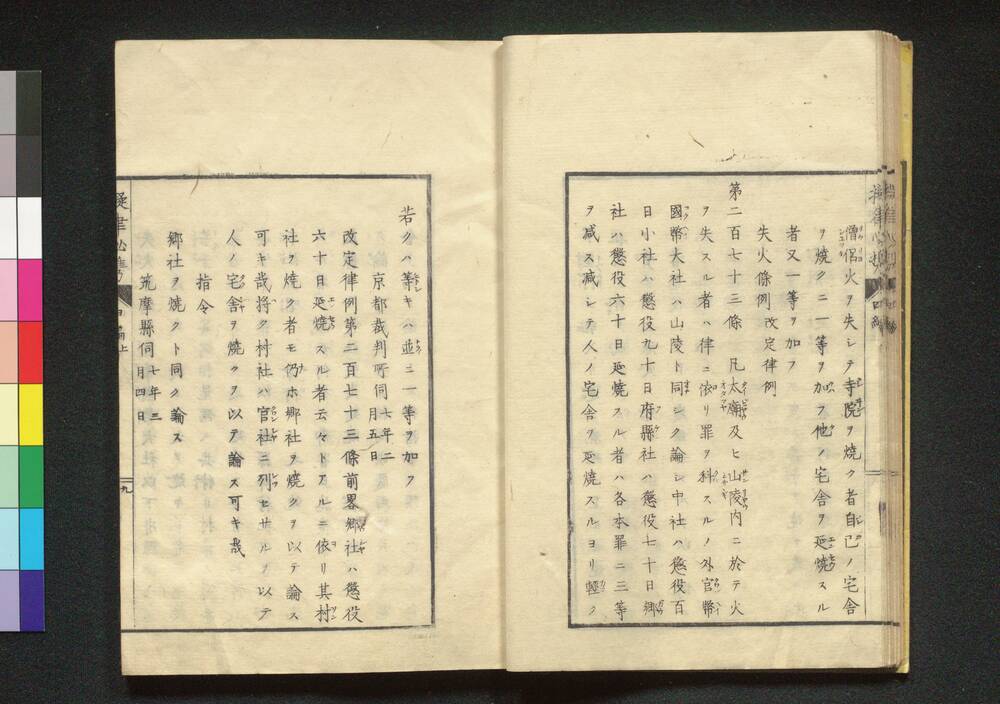 僧侶火ヲ失シテ寺院ヲ燒ク者自己ノ宅舎
ヲ燒クニ一等ヲ加フ他ノ宅舎ヲ延燒スル
者又一等ヲ加フ
失火條例 改定律例
第二百七十三條 凡太廟及ヒ山陵内ニ於テ火
ヲ失スル者ハ律ニ依リ罪ヲ科スルノ外官幣
國幣大社ハ山陵ト同シク論シ中社ハ懲役百
日小社ハ懲役九十日府縣社ハ懲役七十日郷
社ハ懲役六十日延燒スル者ハ各本罪ニ三等
ヲ減ス減シテ人ノ宅舎ヲ延燒スルヨリ輕ク
若クハ等キハ並ニ一等ヲ加フ
京都裁判所伺 七年二月五日
改定律例第二百七十三條前畧郷社ハ懲役
六十日延燒スル者云々トアルニ依リ其村
社ヲ燒ク者モ仍ホ郷社ヲ燒クヲ以テ論ス
可キ哉將タ村社ハ官社ニ列セサルヲ以テ
人ノ宅舎ヲ燒クヲ以テ論ス可キ哉
指令
郷社ヲ燒クト同ク論ス
筑摩縣伺 七年三月四日
九